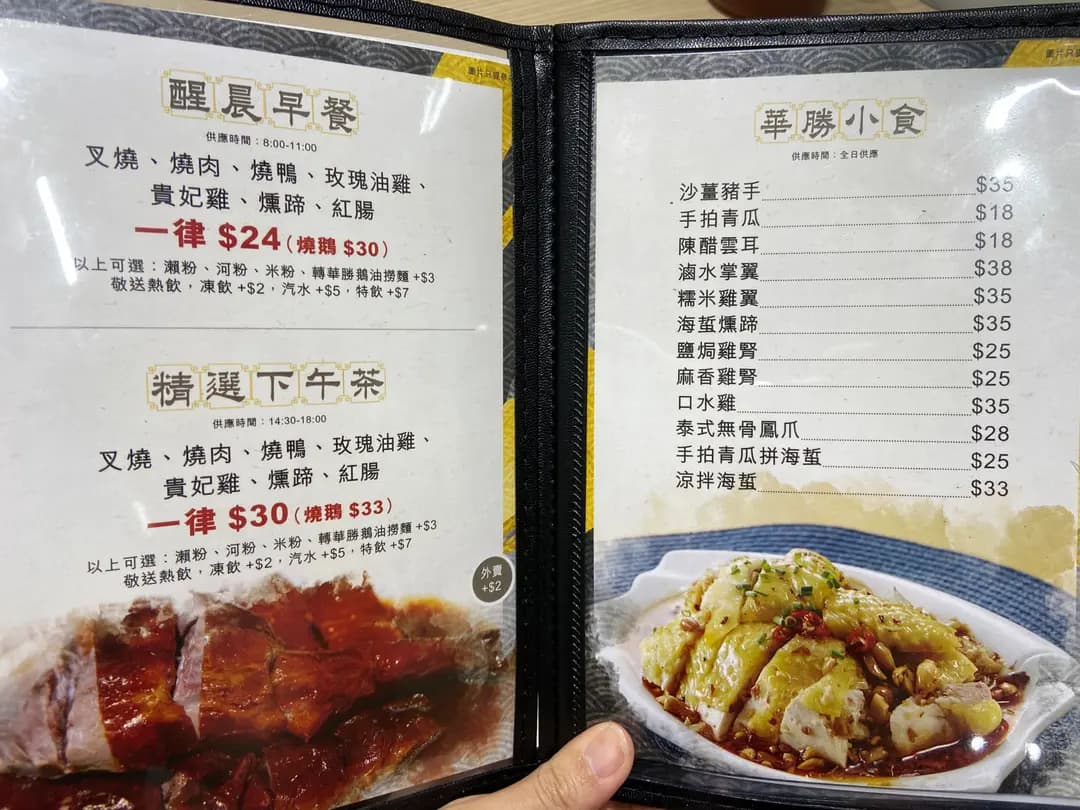 圖片只供參
醒晨早餐
供應時間：8:00-11:00
叉燒、燒肉、燒鴨、玫瑰油雞、
貴妃雞、燻蹄、紅腸
一律 $24（燒鵝 $30）
以上可選：瀨粉、河粉、米粉、轉華勝鵝油撈麵 +$3
敬送熱飲，凍飲 +$2，汽水 +$5，特飲 +$7
精選下午茶
供應時間：14:30-18:00
叉燒、燒肉、燒鴨、玫瑰油雞、
貴妃雞、燻蹄、紅腸
一律 $30（燒鵝 $33）
以上可選：瀨粉、河粉、米粉、轉華勝鵝油撈麵 +$3
敬送熱飲，凍飲 +$2，汽水 +$5，特飲 +$7
外賣
+$2
圖片只
華勝小食
供應時間：全日供應
沙薑豬手 $35
手拍青瓜 $18
陳醋雲耳 $18
滷水掌翼 $38
糯米雞翼 $35
海蜇燻蹄 $35
鹽焗雞腎 $25
麻香雞腎 $25
口水雞 $35
泰式無骨鳳爪 $28
手拍青瓜拼海蜇 $25
涼拌海蜇 $33